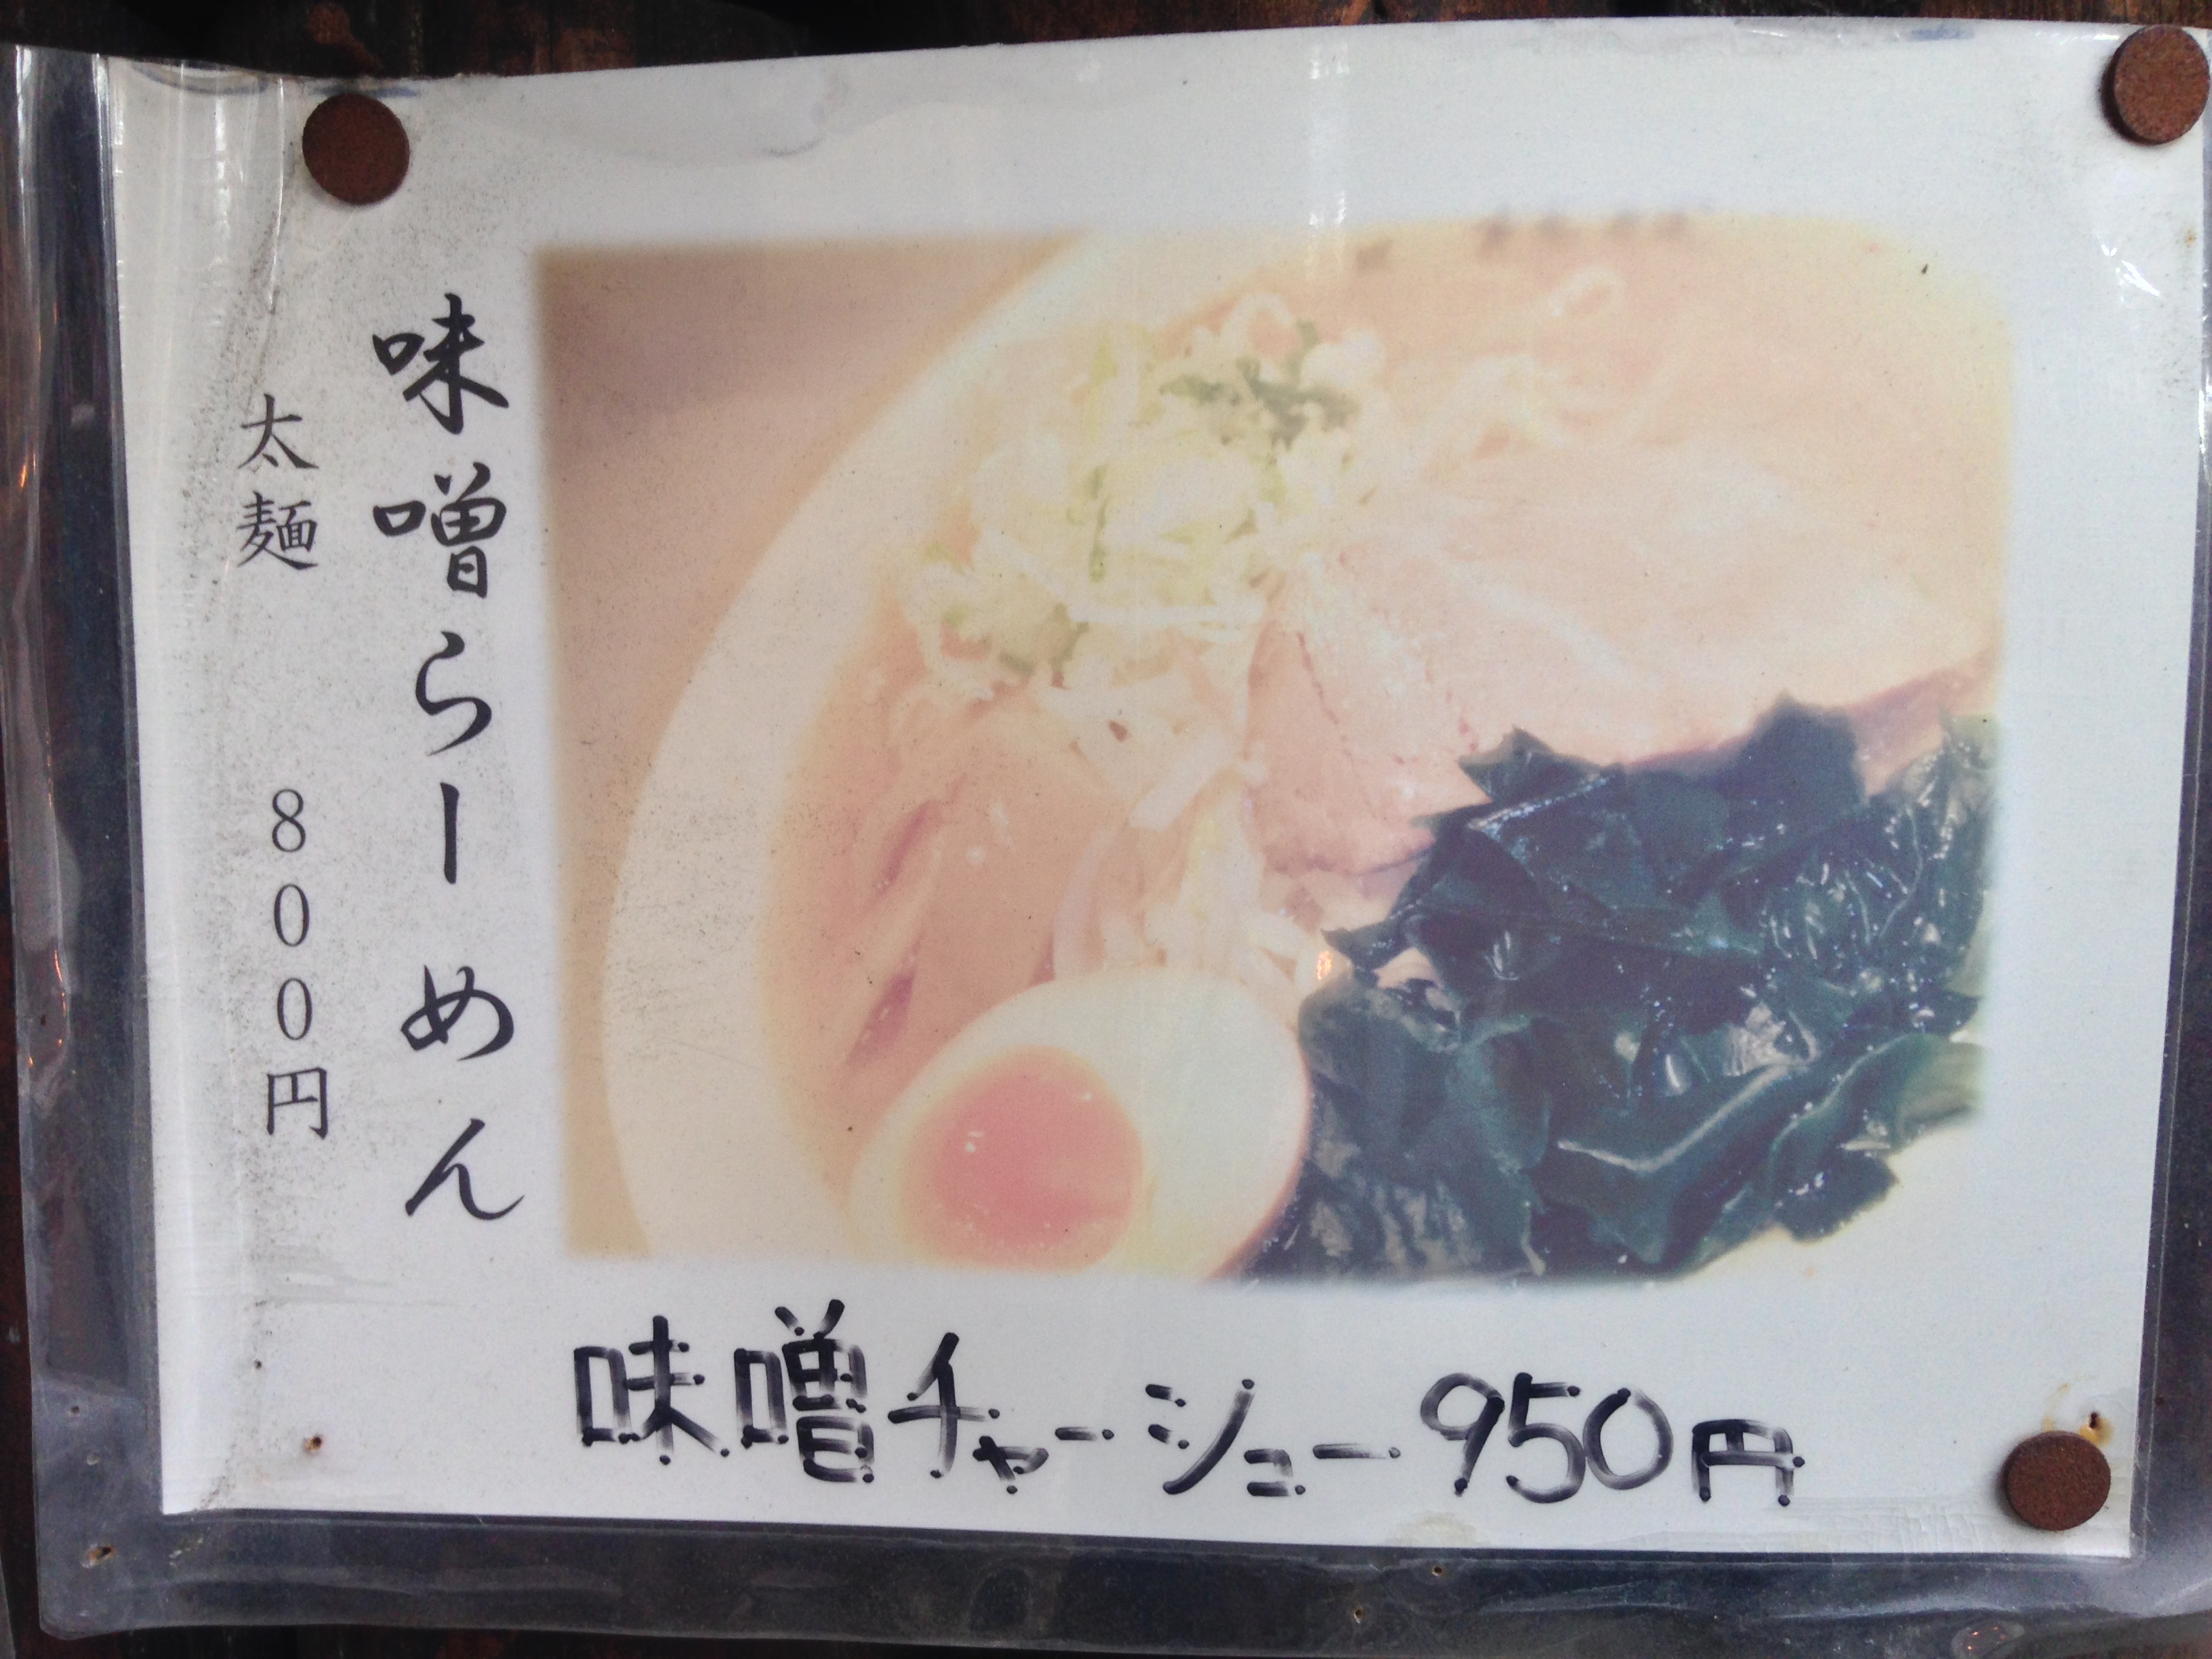 味噌らーめん
太麺 800円
味噌チャーシュー950円